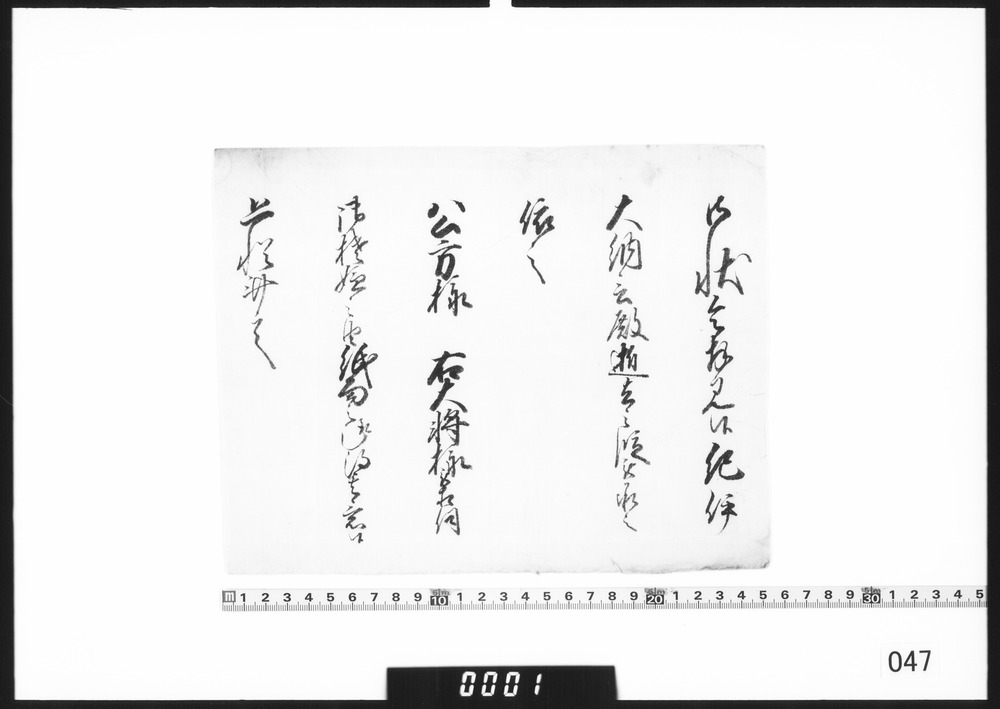 御状令拝見候紀伊
大納言殿逝去之段被承之
依之
公方様 右大将様為伺
御機嫌 紙面之得其意候
恐惶謹言
m 1 2 3 4 5 6 7 8 9 10 1 2 3 4 5 6 7 8 9 20 1 2 3 4 5 6 7 8 9 30 1 2 3 4 5
047
0001